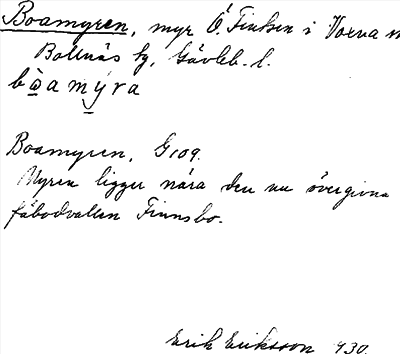 Boamyren, myr Ö. Finksen i Voxna
Bollnäs tg, Gävleb. l.
bòamýra
Boamyren, G109.
Myren ligger nära den nu övergivna
fäbodvallen Finnsbo.
Erik Eriksson 930.